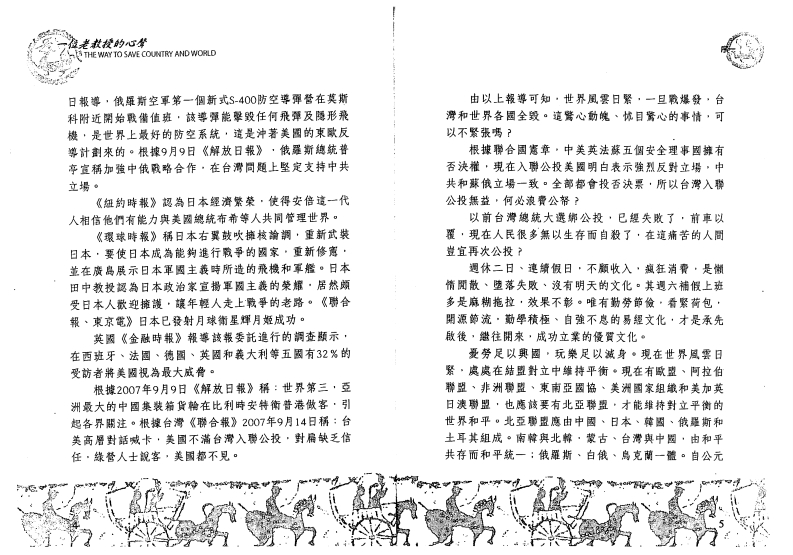 一位老教授的心聲
THE WAY TO SAVE COUNTRY AND WORLD
日報導，俄羅斯空軍第一個新式S-400防空導彈營在莫斯
科附近開始戰備值班，該導彈能擊毀任何飛彈及隱形飛
機，是世界上最好的防空系統，這是沖著美國的東歐反
導計劃來的。根據9月9日《解放日報》，俄羅斯總統普
亭宣稱加強中俄戰略合作，在台灣問題上堅定支持中共
立場。
《紐約時報》認為日本經濟繁榮，使得安倍這一代
人相信他們有能力與美國總統布希等人共同管理世界。
《環球時報》稱日本右翼鼓吹擁核論調，重新武裝
日本，要使日本成為能夠進行戰爭的國家，重新修憲，
並在廣島展示日本軍國主義時所造的飛機和軍艦。日本
田中教授認為日本政治家宣揚軍國主義的榮耀，居然頗
受日本人歡迎擁護，讓年輕人走上戰爭的老路。《聯合
報、東京電》日本已發射月球衛星輝月姬成功。
英國《金融時報》報導該報委託進行的調查顯示，
在西班牙、法國、德國、英國和義大利等五國有32％的
受訪者將美國視為最大威脅。
根據2007年9月9日《解放日報》稱：世界第三，亞
洲最大的中國集裝箱貨輪在比利時安特衛普港做客，引
起各界關注。根據台灣《聯合報》2007年9月14日稱：台
美高層對話喊卡，美國不滿台灣入聯公投，對扁缺乏信
任，綠營人士說客，美國都不見。
4
由以上報導可知，世界風雲日緊，一旦戰爆發，台
灣和世界各國全毀。這驚心動魄、怵目驚心的事情，可
以不緊張嗎？
根據聯合國憲章，中美英法蘇五個安全理事國擁有
否決權，現在入聯公投美國明白表示強烈反對立場，中
共和蘇俄立場一致。全部都會投否決票，所以台灣入聯
公投無益，何必浪費公帑？
以前台灣總統大選綁公投，已經失敗了，前車以
覆，現在人民很多無以生存而自殺了，在這痛苦的人間
豈宜再次公投？
週休二日、連續假日，不顧收入，瘋狂消費，是懶
惰閒散、墮落失敗、沒有明天的文化。其週六補假上班
多是麻糊拖拉，效果不彰。唯有勤勞節儉，看緊荷包，
開源節流，勤學積極、自強不息的易經文化，才是承先
啟後，繼往開來，成功立業的優質文化。
憂勞足以興國，玩樂足以滅身。現在世界風雲日
緊，處處在結盟對立中維持平衡。現在有歐盟、阿拉伯
聯盟、非洲聯盟、東南亞國協、美洲國家組織和美加英
日澳聯盟，也應該要有北亞聯盟，才能維持對立平衡的
世界和平。北亞聯盟應由中國、日本、韓國、俄羅斯和
土耳其組成。南韓與北韓，蒙古、台灣與中國，由和平
共存而和平統一；俄羅斯、白俄、烏克蘭一體。自公元
5